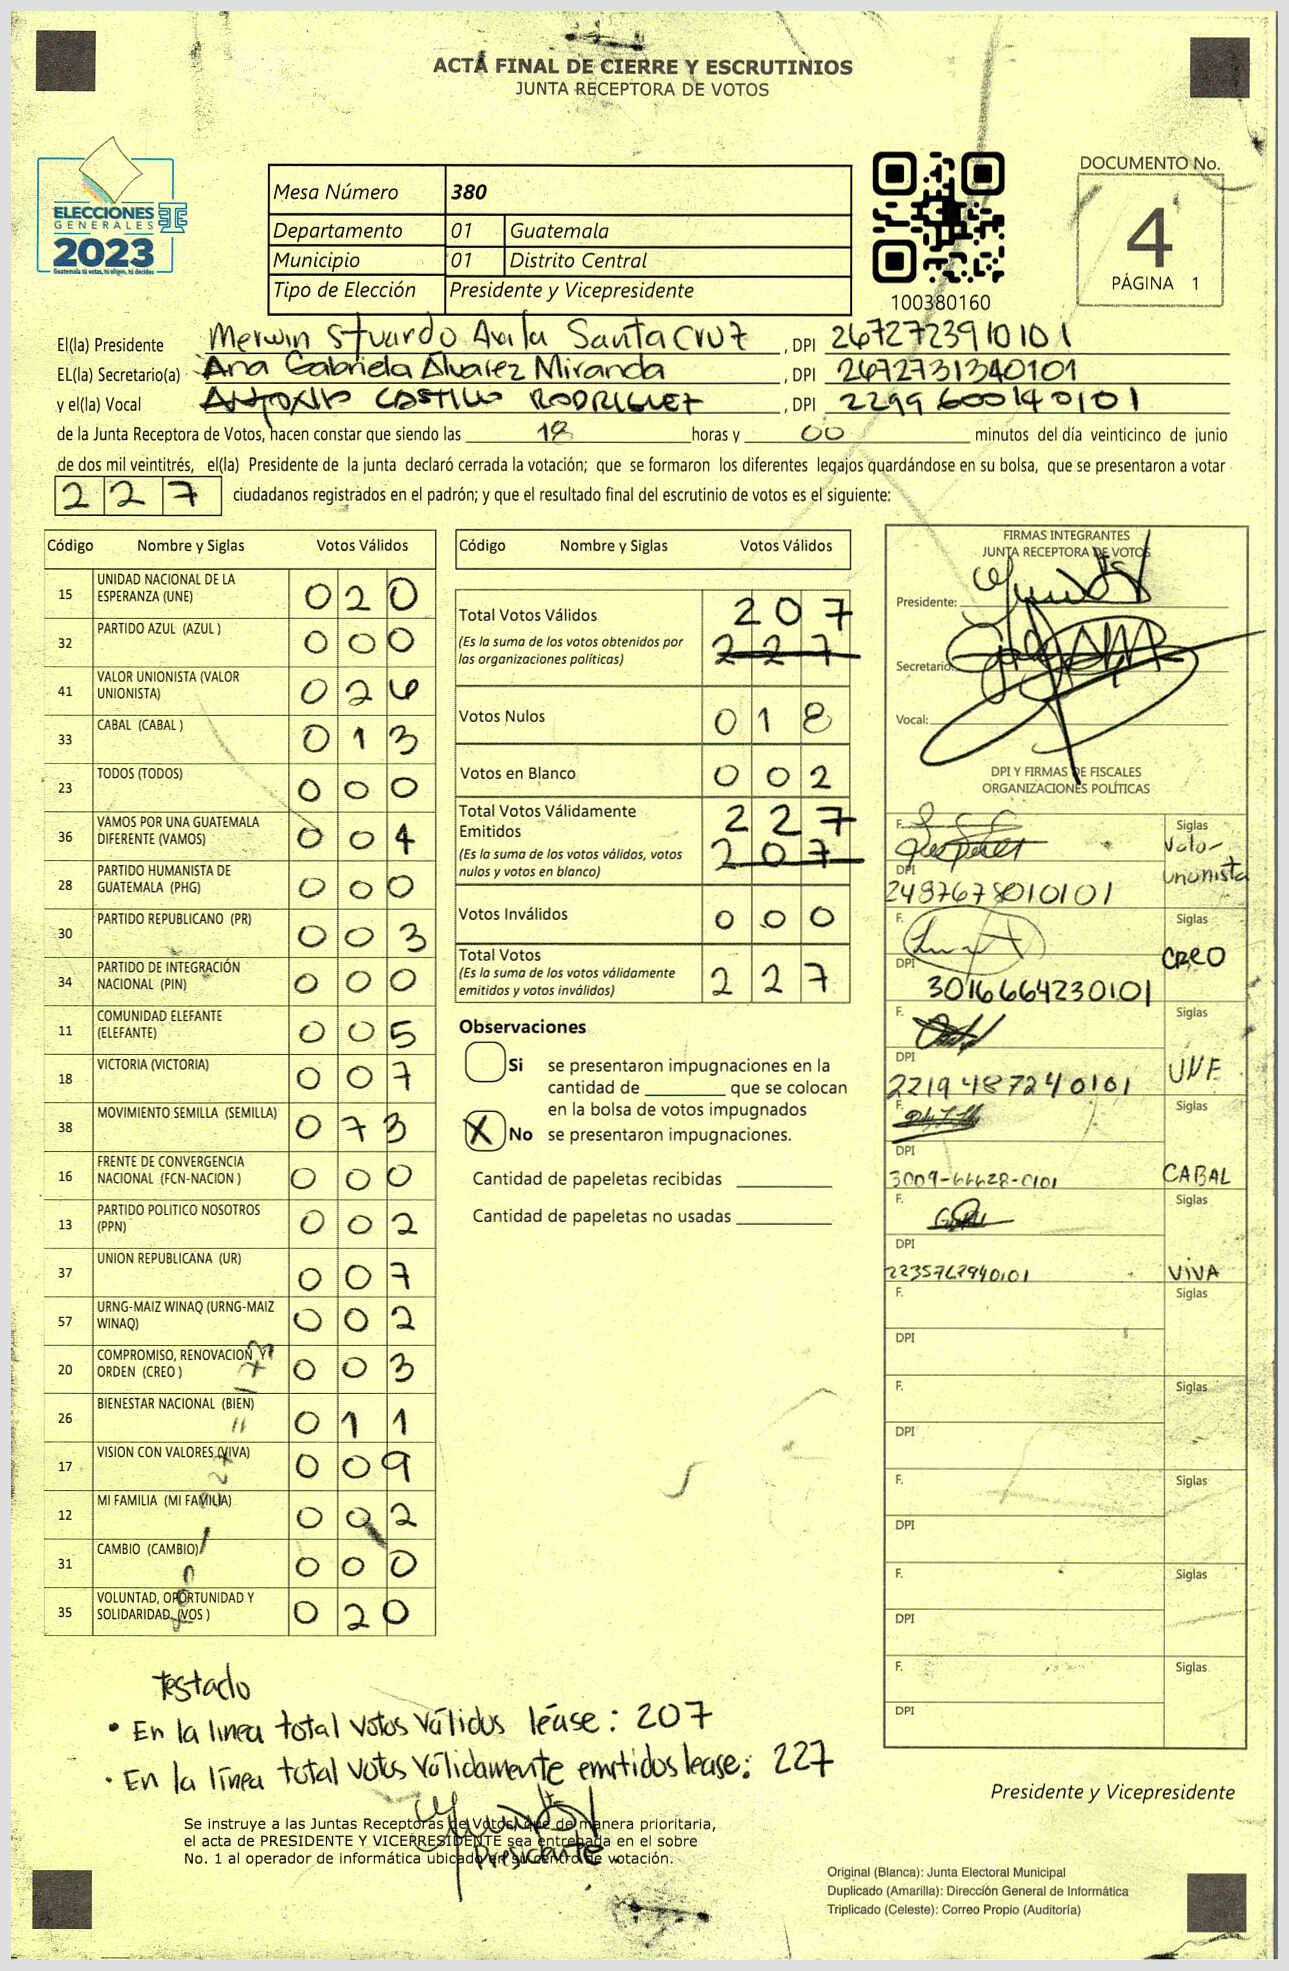 ACTA FINAL DE CIERRE Y ESCRUTINIOS
JUNTA RECEPTORA DE VOTOS
ELECCIONES
GENERALES
2023
Guatemala tú votas, tú eliges, tú decides
Mesa Número 380
Departamento 01 Guatemala
Municipio 01 Distrito Central
Tipo de Elección Presidente y Vicepresidente
100380160
DOCUMENTO No.
4
PÁGINA 1
El(la) Presidente Merwin Stuardo Avila Santa Cruz , DPI 2672723910101
EL(la) Secretario(a) Ana Gabriela Alvarez Miranda , DPI 2672731340101
y el(la) Vocal ANTONIO CASTILLO RODRIGUEZ , DPI 2299600140101
de la Junta Receptora de Votos, hacen constar que siendo las 18 horas y 00 minutos del día veinticinco de junio
de dos mil veintitrés, el(la) Presidente de la junta declaró cerrada la votación; que se formaron los diferentes legajos guardándose en su bolsa, que se presentaron a votar
227 ciudadanos registrados en el padrón; y que el resultado final del escrutinio de votos es el siguiente:
Código Nombre y Siglas Votos Válidos
15 UNIDAD NACIONAL DE LA ESPERANZA (UNE) 020
32 PARTIDO AZUL (AZUL ) 000
41 VALOR UNIONISTA (VALOR UNIONISTA) 026
33 CABAL (CABAL ) 013
23 TODOS (TODOS) 000
36 VAMOS POR UNA GUATEMALA DIFERENTE (VAMOS) 004
28 PARTIDO HUMANISTA DE GUATEMALA (PHG) 000
30 PARTIDO REPUBLICANO (PR) 003
34 PARTIDO DE INTEGRACIÓN NACIONAL (PIN) 000
11 COMUNIDAD ELEFANTE (ELEFANTE) 005
18 VICTORIA (VICTORIA) 007
38 MOVIMIENTO SEMILLA (SEMILLA) 073
16 FRENTE DE CONVERGENCIA NACIONAL (FCN-NACION ) 000
13 PARTIDO POLITICO NOSOTROS (PPN) 002
37 UNION REPUBLICANA (UR) 007
57 URNG-MAIZ WINAQ (URNG-MAIZ WINAQ) 002
20 COMPROMISO, RENOVACION Y ORDEN (CREO ) 003
26 BIENESTAR NACIONAL (BIEN) 011
17 VISION CON VALORES (VIVA) 009
12 MI FAMILIA (MI FAMILIA) 002
31 CAMBIO (CAMBIO) 000
35 VOLUNTAD, OPORTUNIDAD Y SOLIDARIDAD (VOS ) 020
Código Nombre y Siglas Votos Válidos
Total Votos Válidos 207
(Es la suma de los votos obtenidos por las organizaciones políticas) 227
Votos Nulos 018
Votos en Blanco 002
Total Votos Válidamente Emitidos 227
(Es la suma de los votos válidos, votos nulos y votos en blanco) 207
Votos Inválidos 000
Total Votos 227
(Es la suma de los votos válidamente emitidos y votos inválidos)
Observaciones
Si se presentaron impugnaciones en la
cantidad de ________ que se colocan
en la bolsa de votos impugnados
X No se presentaron impugnaciones.
Cantidad de papeletas recibidas
Cantidad de papeletas no usadas
FIRMAS INTEGRANTES
JUNTA RECEPTORA DE VOTOS
Presidente:
Secretario:
Vocal:
DPI Y FIRMAS DE FISCALES
ORGANIZACIONES POLÍTICAS
F. Siglas
Valor
Unionista
DPI
2487678010101
F. Siglas
CREO
DPI
3016664230101
F. Siglas
DPI
2219487240101 UNE
F. Siglas
DPI
3009-66628-0101 CABAL
F. Siglas
DPI
2235767940101 VIVA
F. Siglas
DPI
F. Siglas
DPI
F. Siglas
DPI
F. Siglas
DPI
F. Siglas
DPI
Testado
• En la linea total votos válidos léase: 207
• En la línea total votos válidamente emitidos lease: 227
Presidente
Se instruye a las Juntas Receptoras de Votos, que de manera prioritaria,
el acta de PRESIDENTE Y VICEPRESIDENTE sea entregada en el sobre
No. 1 al operador de informática ubicado en su centro de votación.
Presidente y Vicepresidente
Original (Blanca): Junta Electoral Municipal
Duplicado (Amarilla): Dirección General de Informática
Triplicado (Celeste): Correo Propio (Auditoría)